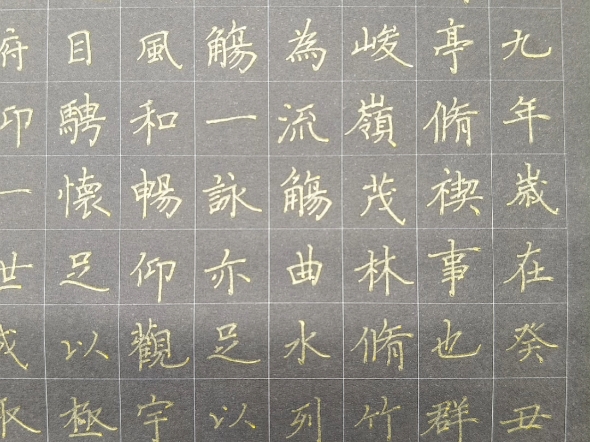 九年歲在癸丑
亭脩禊事也群
峻嶺茂林脩竹
為流觴曲水列
觴一詠亦足以
風和暢仰觀宇
目騁懷足以極
府仰一世或取